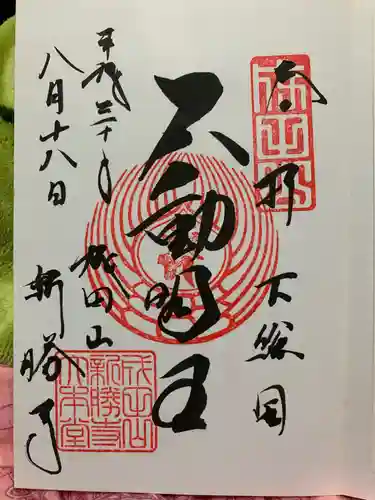 奉拝 下総国
不動明王
成田山
新勝寺
平成三十年
八月十八日
成田山
新勝寺
大本堂